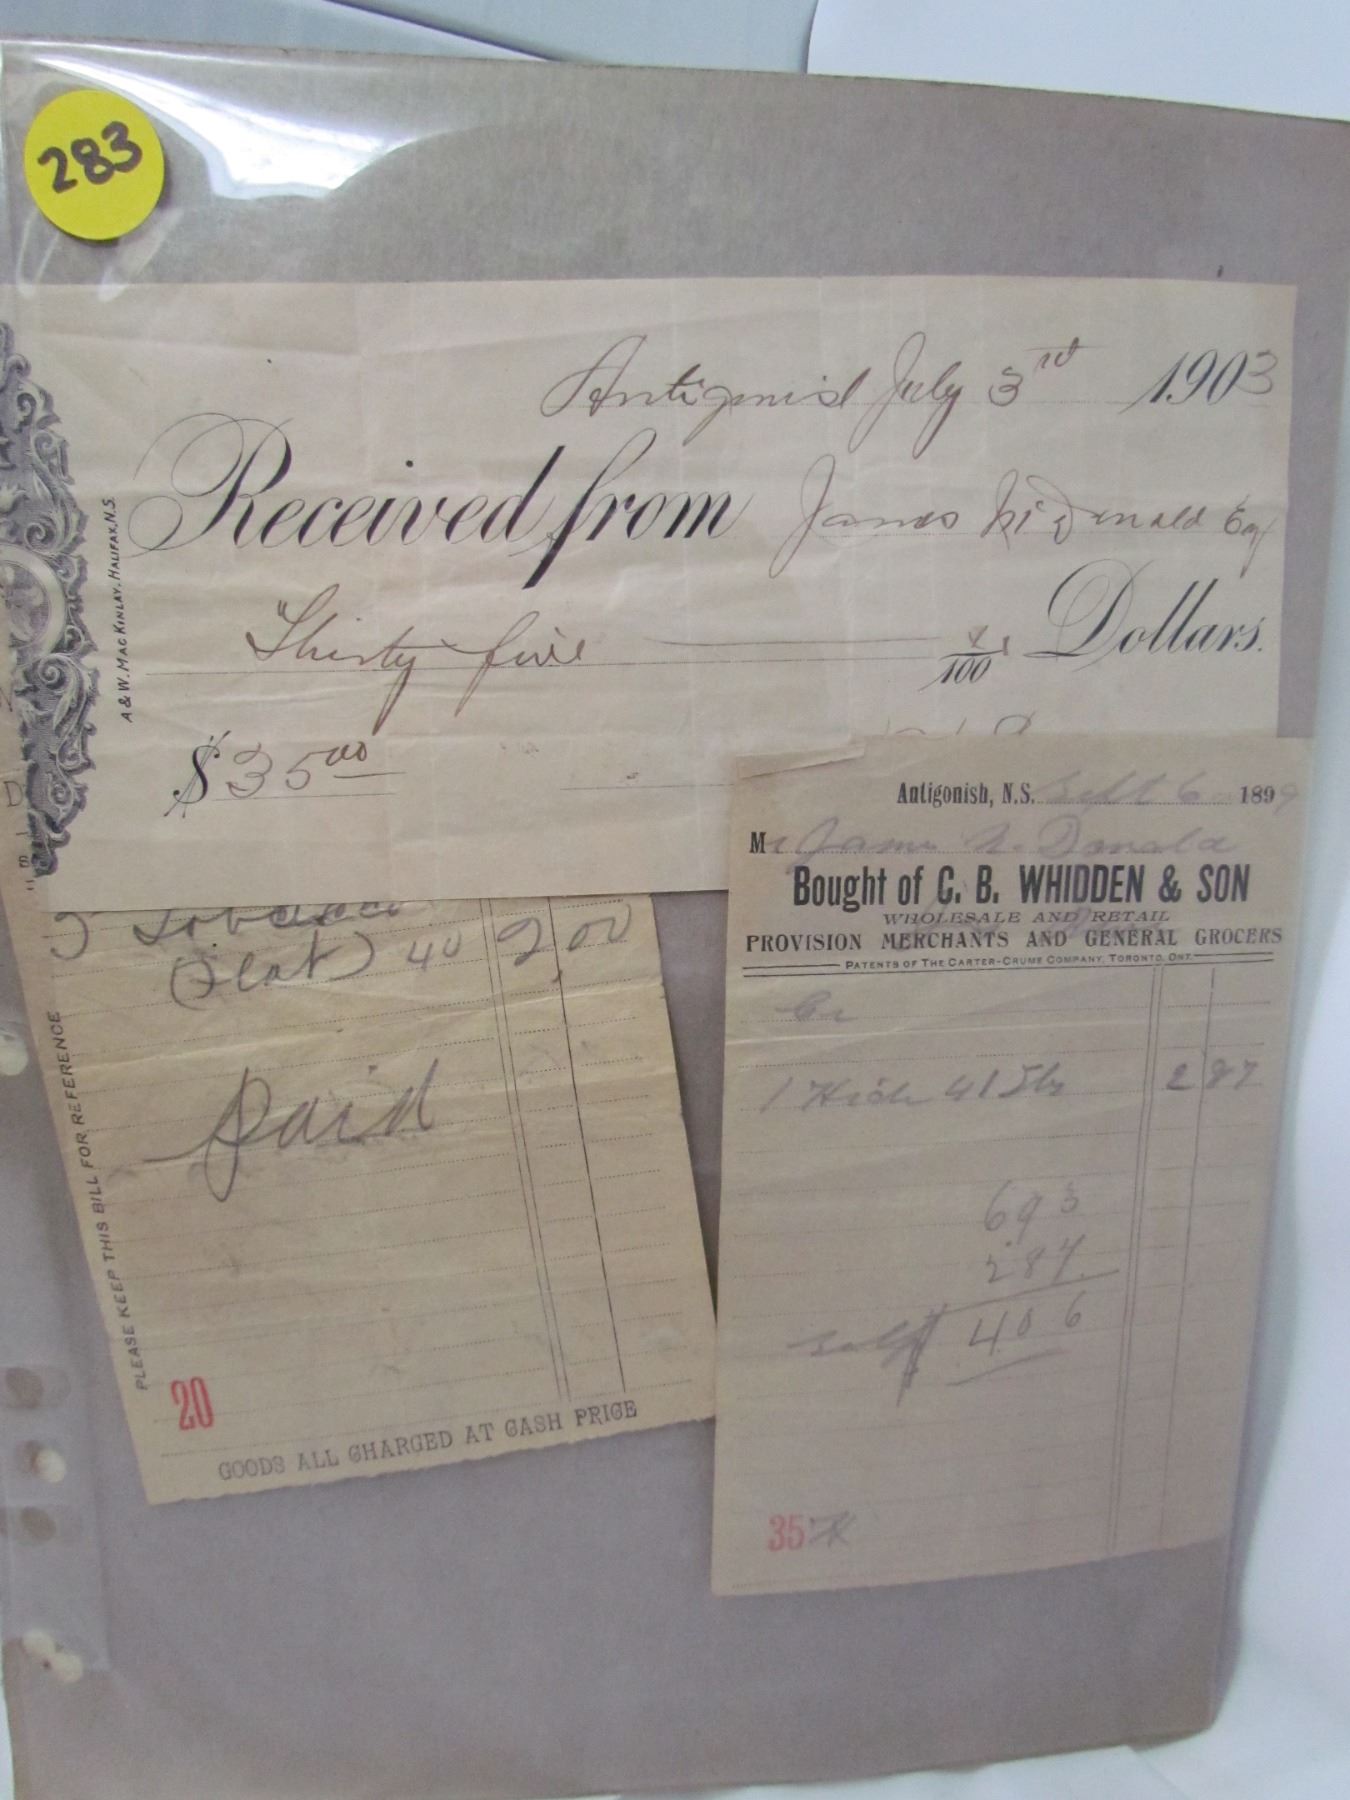 283
Antigonish July 3rd 1903
Received from James McDonald Esq
Thirty five 100 Dollars.
$35.00
A & W. MACKINLAY. HALIFAX, N.S.
5 Tobacco
(Flat) 40 2 00
paid
PLEASE KEEP THIS BILL FOR REFERENCE
20
GOODS ALL CHARGED AT CASH PRICE
Antigonish, N.S. Sept 6 1899
Mr James McDonald
Bought of C. B. WHIDDEN & SON
WHOLESALE AND RETAIL
PROVISION MERCHANTS AND GENERAL GROCERS
PATENTS OF THE CARTER-CRUME COMPANY, TORONTO, ONT.
Cr
1 Hide 41 lbs 2 87
6 93
2 87
4 06
35